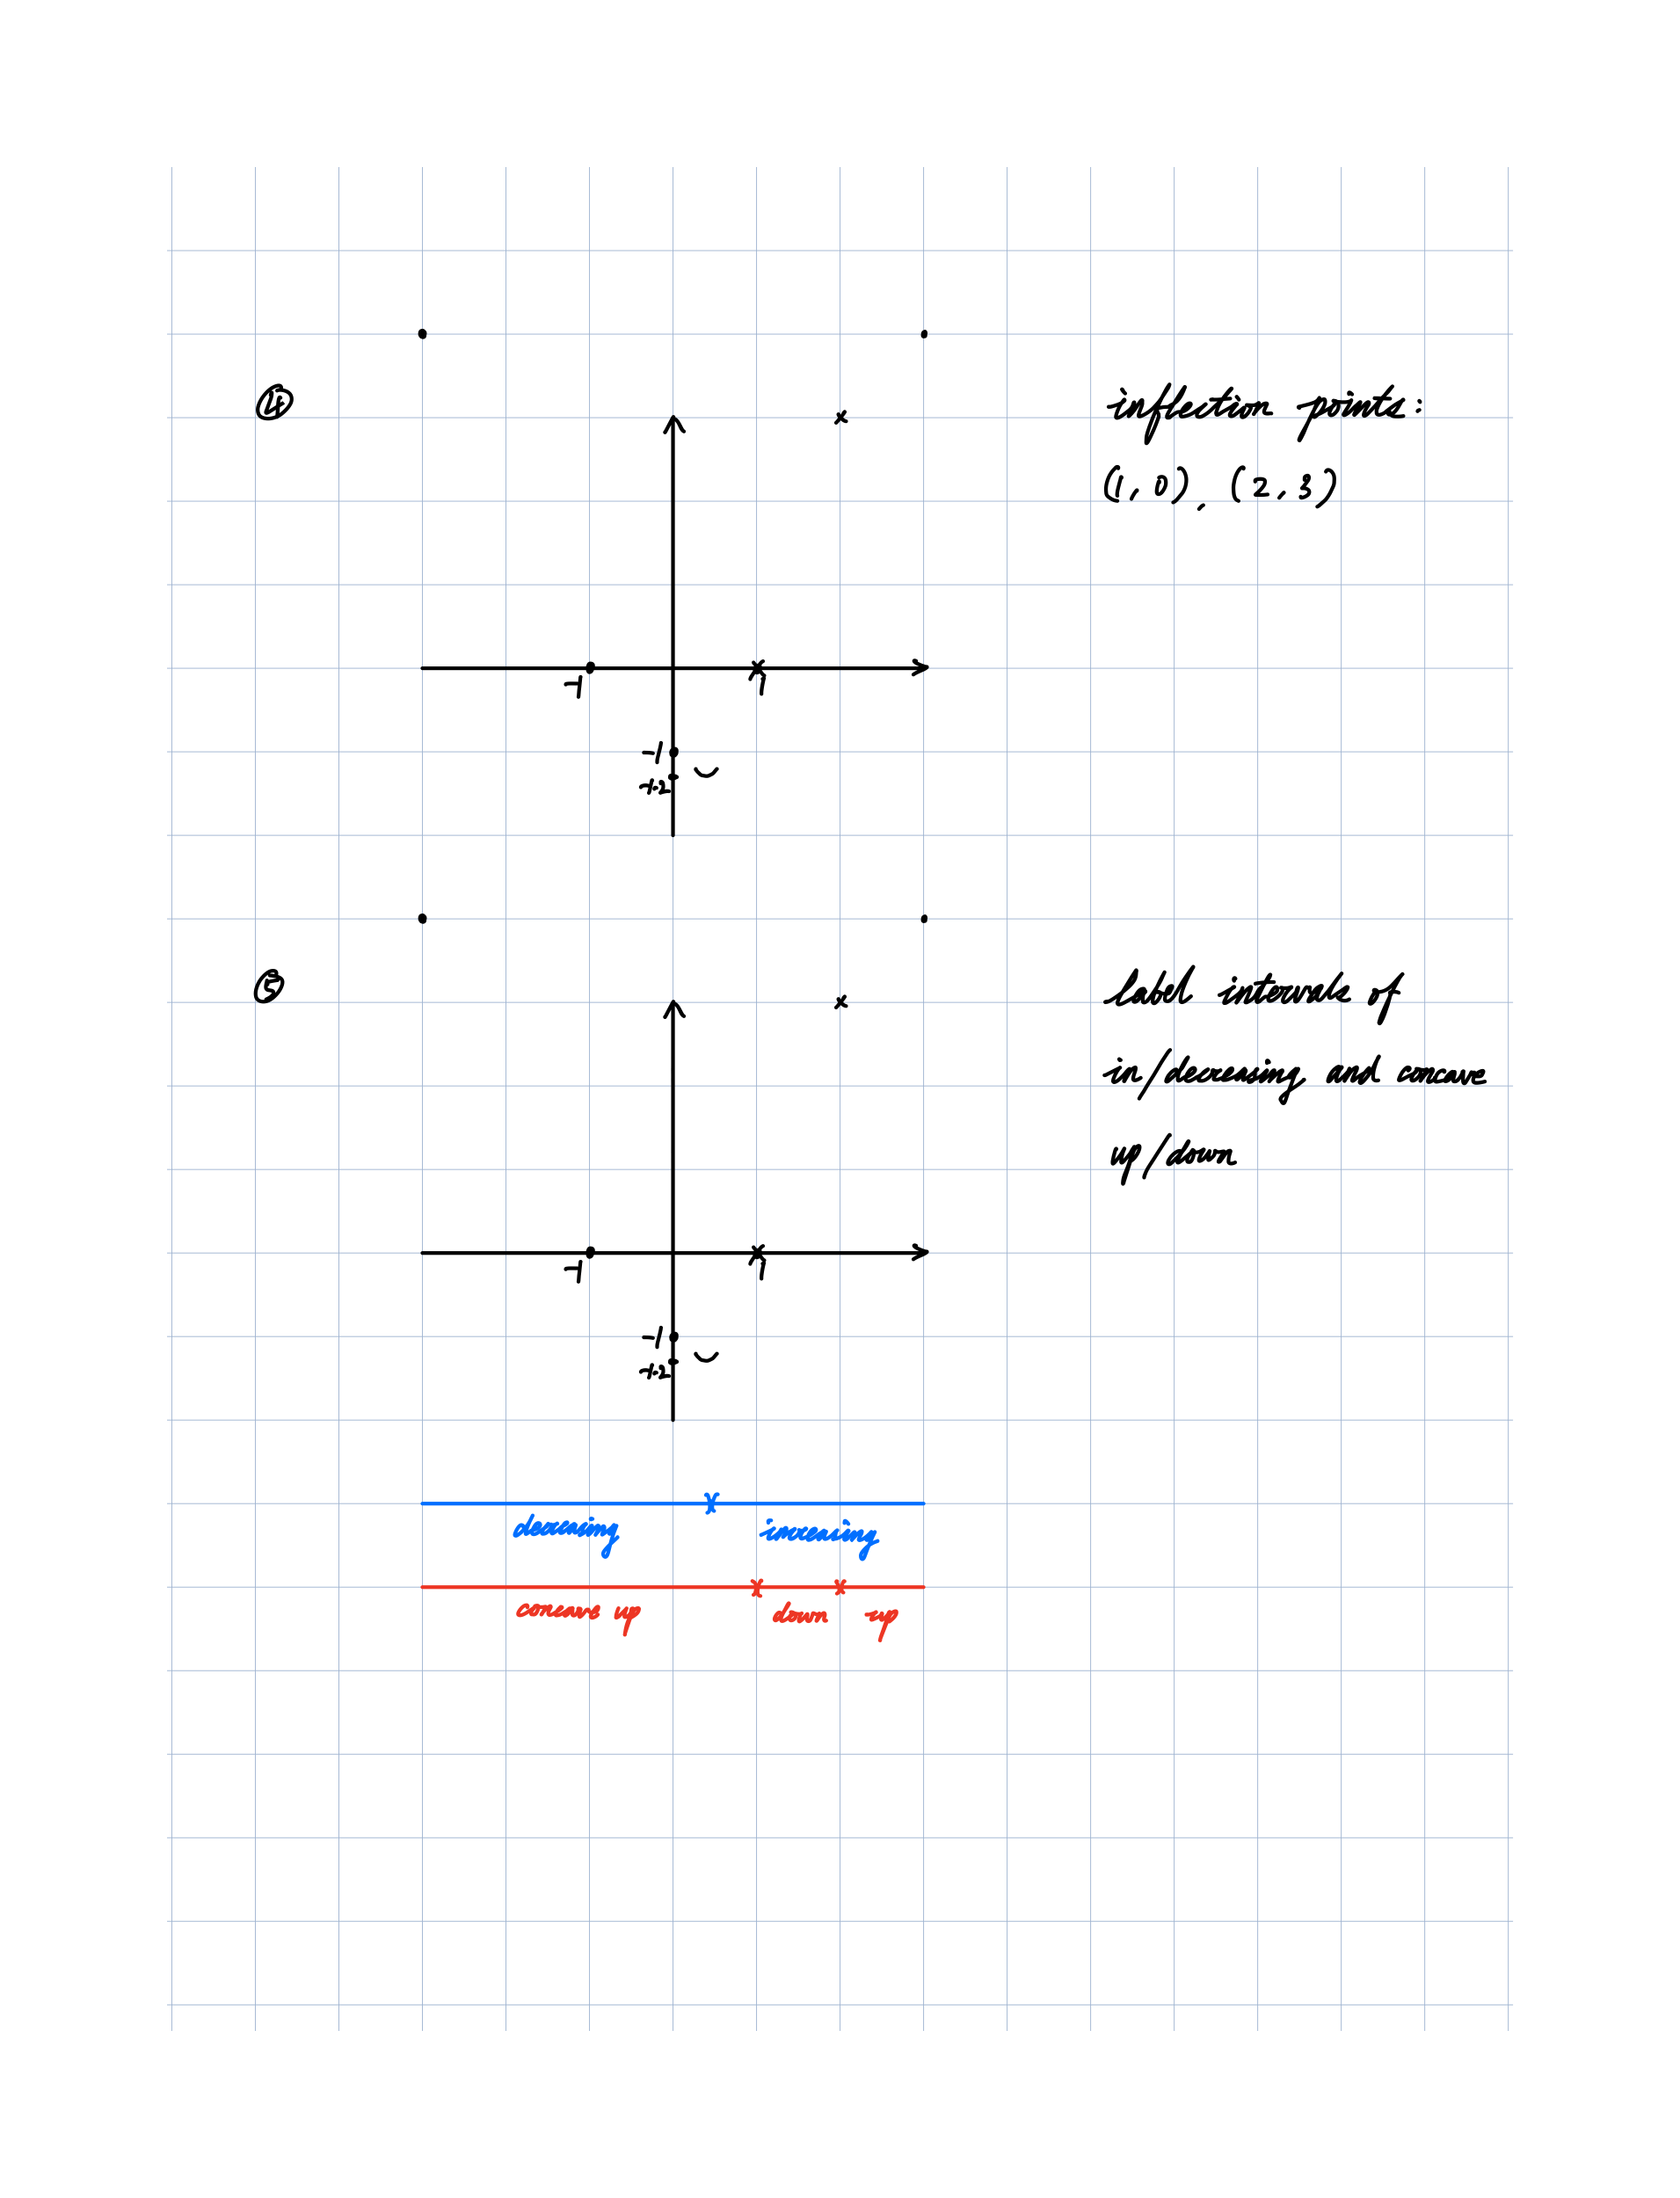 ④
inflection points:
(1, 0), (2, 3)
-1
1
-1
-1.2
⑤
label intervals of
in/decreasing and concave
up/down
-1
1
-1
-1.2
decreasing increasing
concave up down up